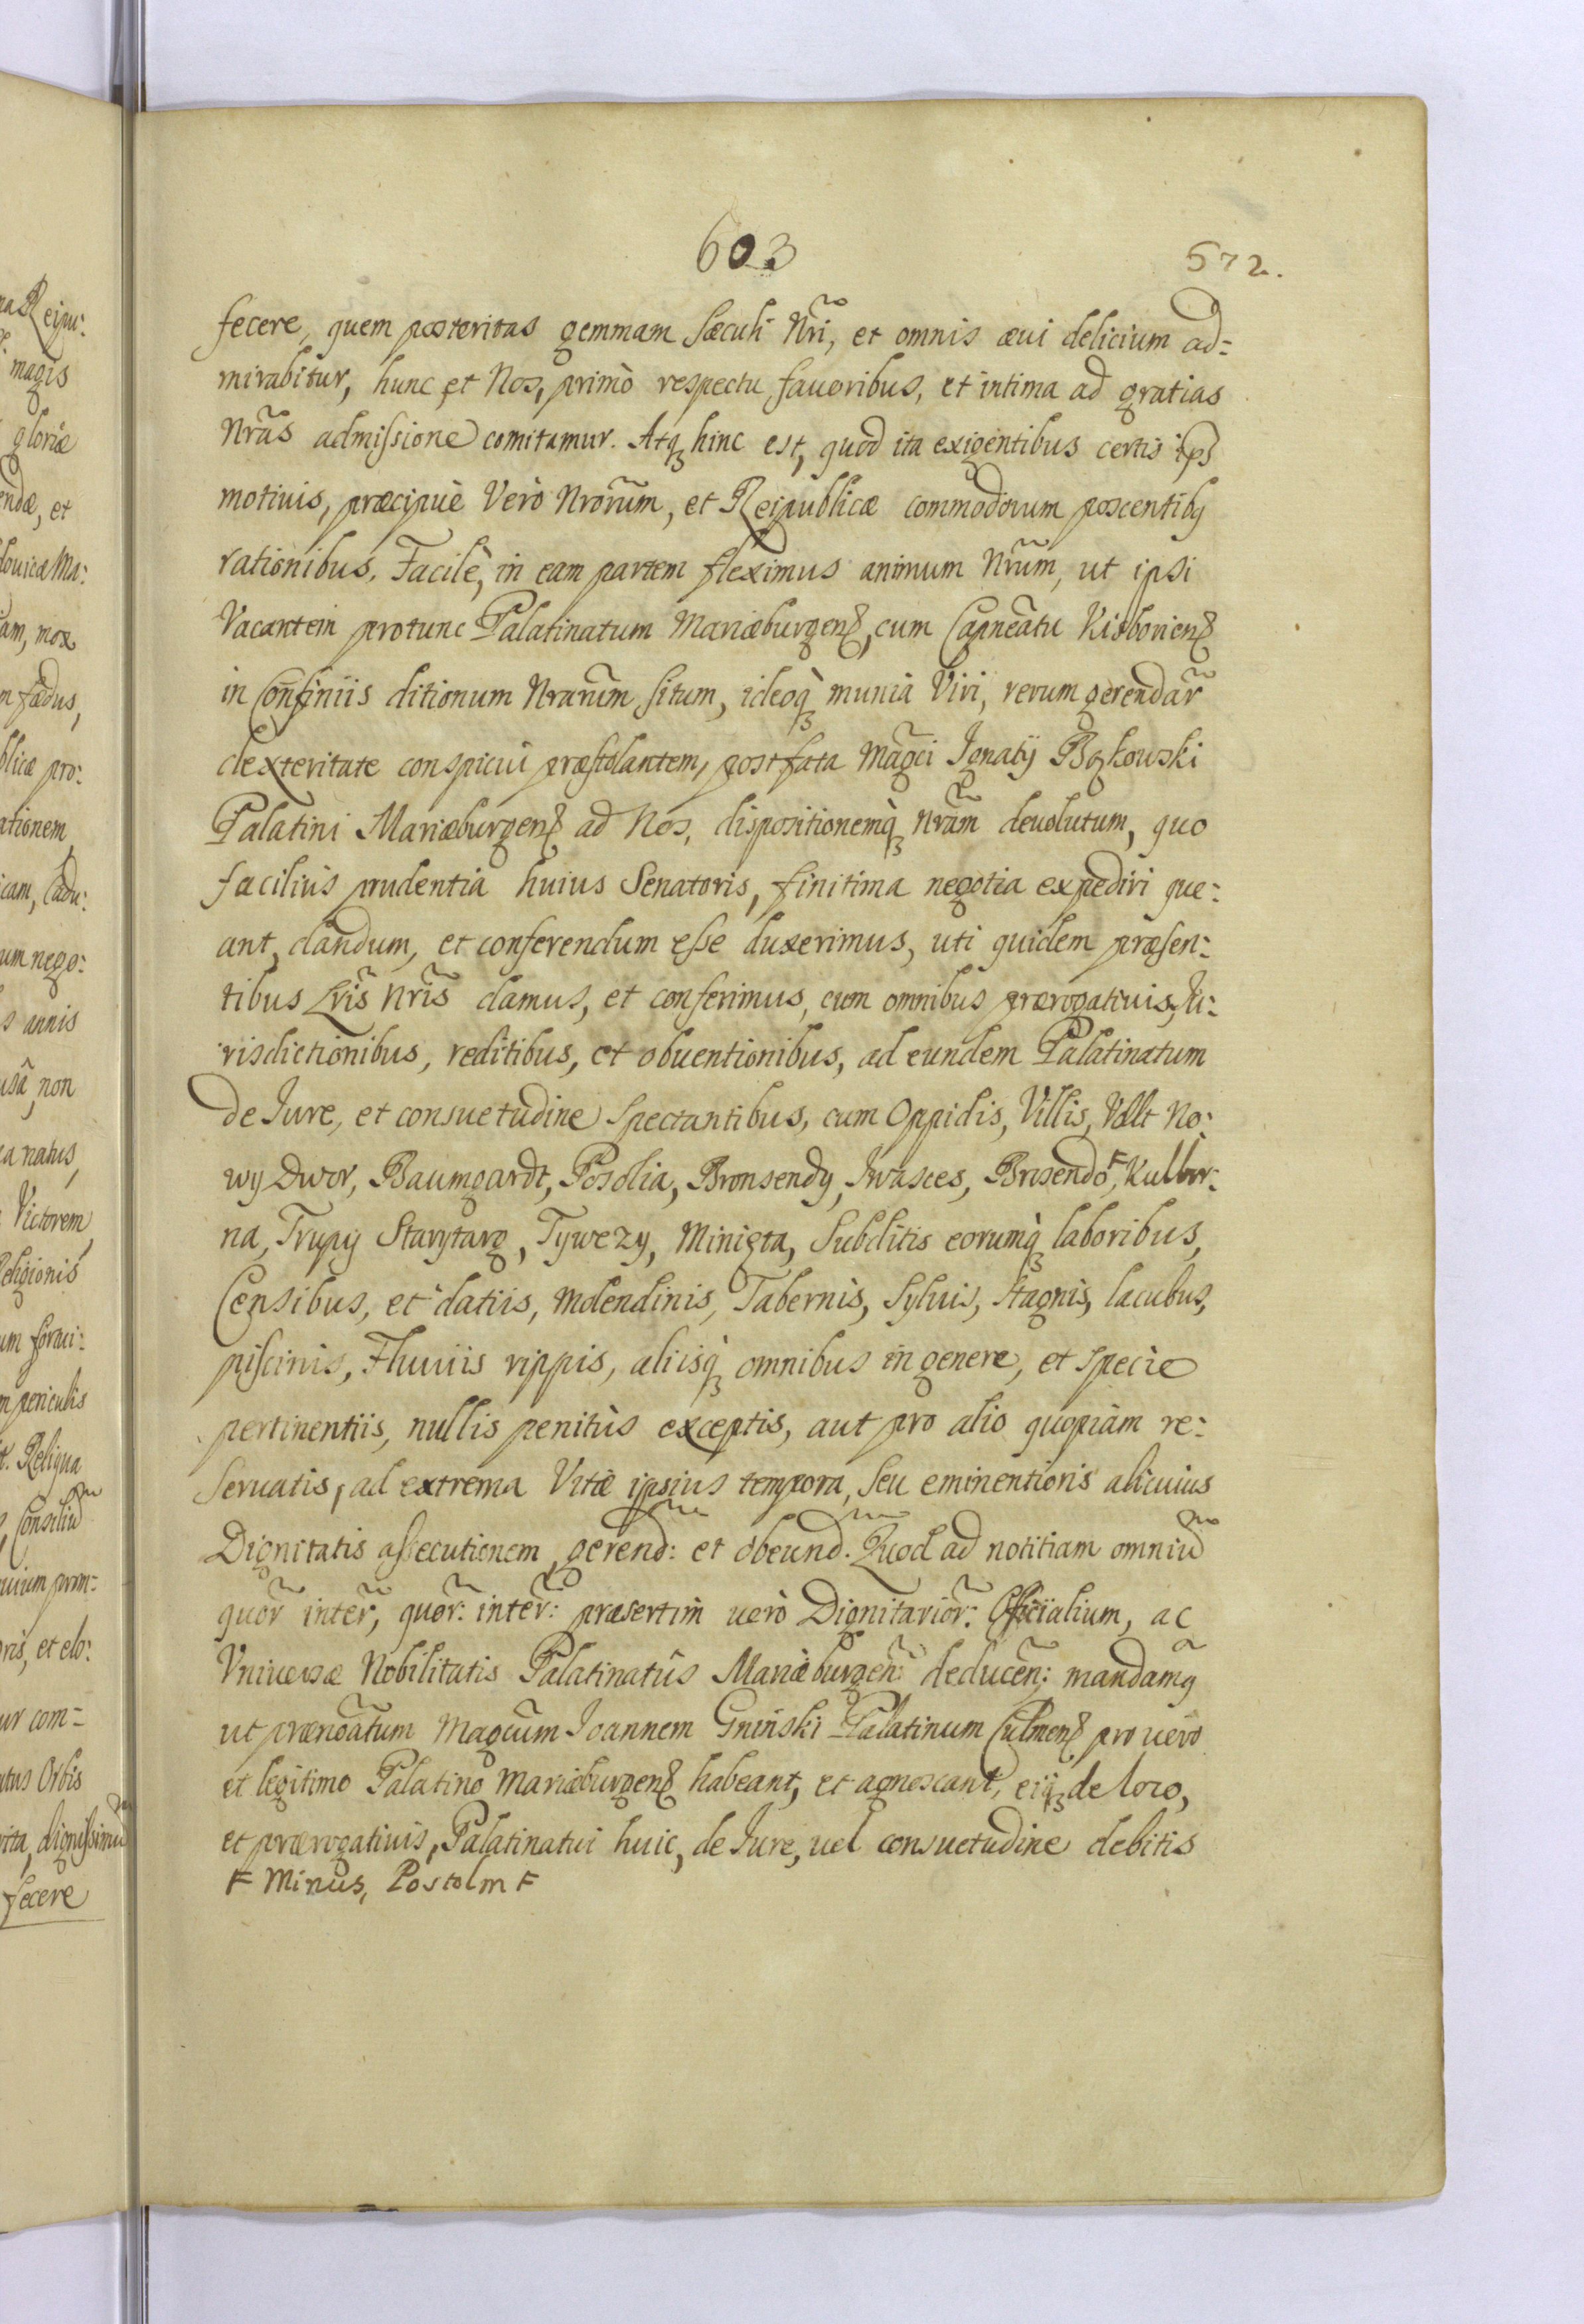 603
572.
fecere, quem posteritas gemmam sæculi Nr̃i, et omnis æui delicium ad=
mirabitur, hunc et Nos, primò respectu fauoribus, et intima ad gratias
Nr̃as admissione comitamur. Atq₃ hinc est, quod ita exigentibus certis
motiuis, præcipuè Verò Nrorum̃, et Reipublicæ commodorum poscentibꝯ
rationibus. Facilè, in eam partem fleximus animum Nr̃um, ut ipsi
Vacantem protunc Palatinatum Mariæburgenꝭ, cum Capneãtu Kisborienꝭ
in Confiniis ditionum Nrarum̃ situm, ideoq₃ munia Viri, rerum gerendar̃
dexteritate conspicui præstolantem, post fata Mag̃ci Ignatÿ Bąkowski
Palatini Mariæburgenꝭ ad Nos, dispositionemq₃ Nr̃am deuolutum, quo
facilius prudentia huius Senatoris, finitima negotia expediri que:
ant, dandum, et conferendum esse duxerimus, uti quidem præsen:
tibus Lr̃is Nr̃is damus, et conferimus, cum omnibus prærogatiuis, Iu:
risdictionibus, reditibus, et obuentionibus, ad eundem Palatinatum
de Iure, et consuetudine spectantibus, cum Oppidis, Villis, Vdlt No:
wy Dwor, Baumgardt, Posolia, Bronsendy, Iwasces, Brisendo F, Kulbor:
na, Trupy Starytarg, Tywezy, Minigta, Subditis eorumq₃ laboribus,
Censibus, et datiis, Molendinis, Tabernis, Syluis, Stagnis, lacubus,
piscinis, Fluuiis rippis, aliisq₃ omnibus in genere, et specie
pertinentiis, nullis penitùs exceptis, aut pro alio quopiam re:
seruatis, ad extrema Vitæ ipsius tempora, seu eminentioris alicuius
Dignitatis assecutionem, gerend̃: et obeund̃. Quod ad notitiam omniũ
quor̃ inter̃, quor̃: inter̃: præsertim uerò Dignitarior̃: Officialium, ac
Vniuersæ Nobilitatis Palatinatûs Mariæburgeñ: deduceñ: mandamꝯ
ut prænoãtum Magcũm Ioannem Gniński Palatinum Culmenꝭ pro uero
et legitimo Palatino Mariæburgenꝭ habeant, et agnoscant, eiq₃ de loco,
et prærogatiuis, Palatinatui huic, de Iure, uel consuetudine debitis
F Minus, Postolm F